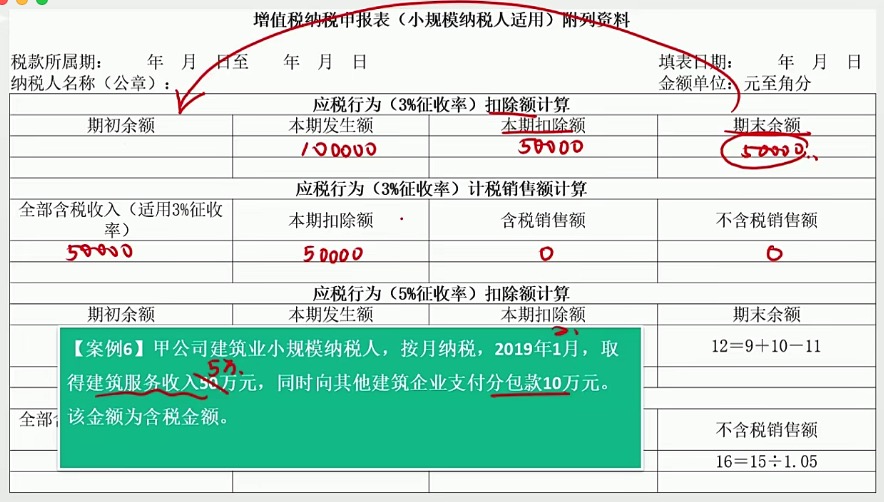 增值税纳税申报表（小规模纳税人适用）附列资料
税款所属期： 年 月 日至 年 月 日 填表日期： 年 月 日
纳税人名称（公章）： 金额单位：元至角分
应税行为（3%征收率）扣除额计算
期初余额 本期发生额 本期扣除额 期末余额
100000 50000 50000
应税行为（3%征收率）计税销售额计算
全部含税收入（适用3%征收率） 本期扣除额 含税销售额 不含税销售额
50000 50000 0 0
应税行为（5%征收率）扣除额计算
期初余额 本期发生额 本期扣除额 期末余额
12＝9＋10－11
【案例6】甲公司建筑业小规模纳税人，按月纳税，2019年1月，取
5万
得建筑服务收入30万元，同时向其他建筑企业支付分包款10万元。
该金额为含税金额。
全部含
不含税销售额
16＝15÷1.05